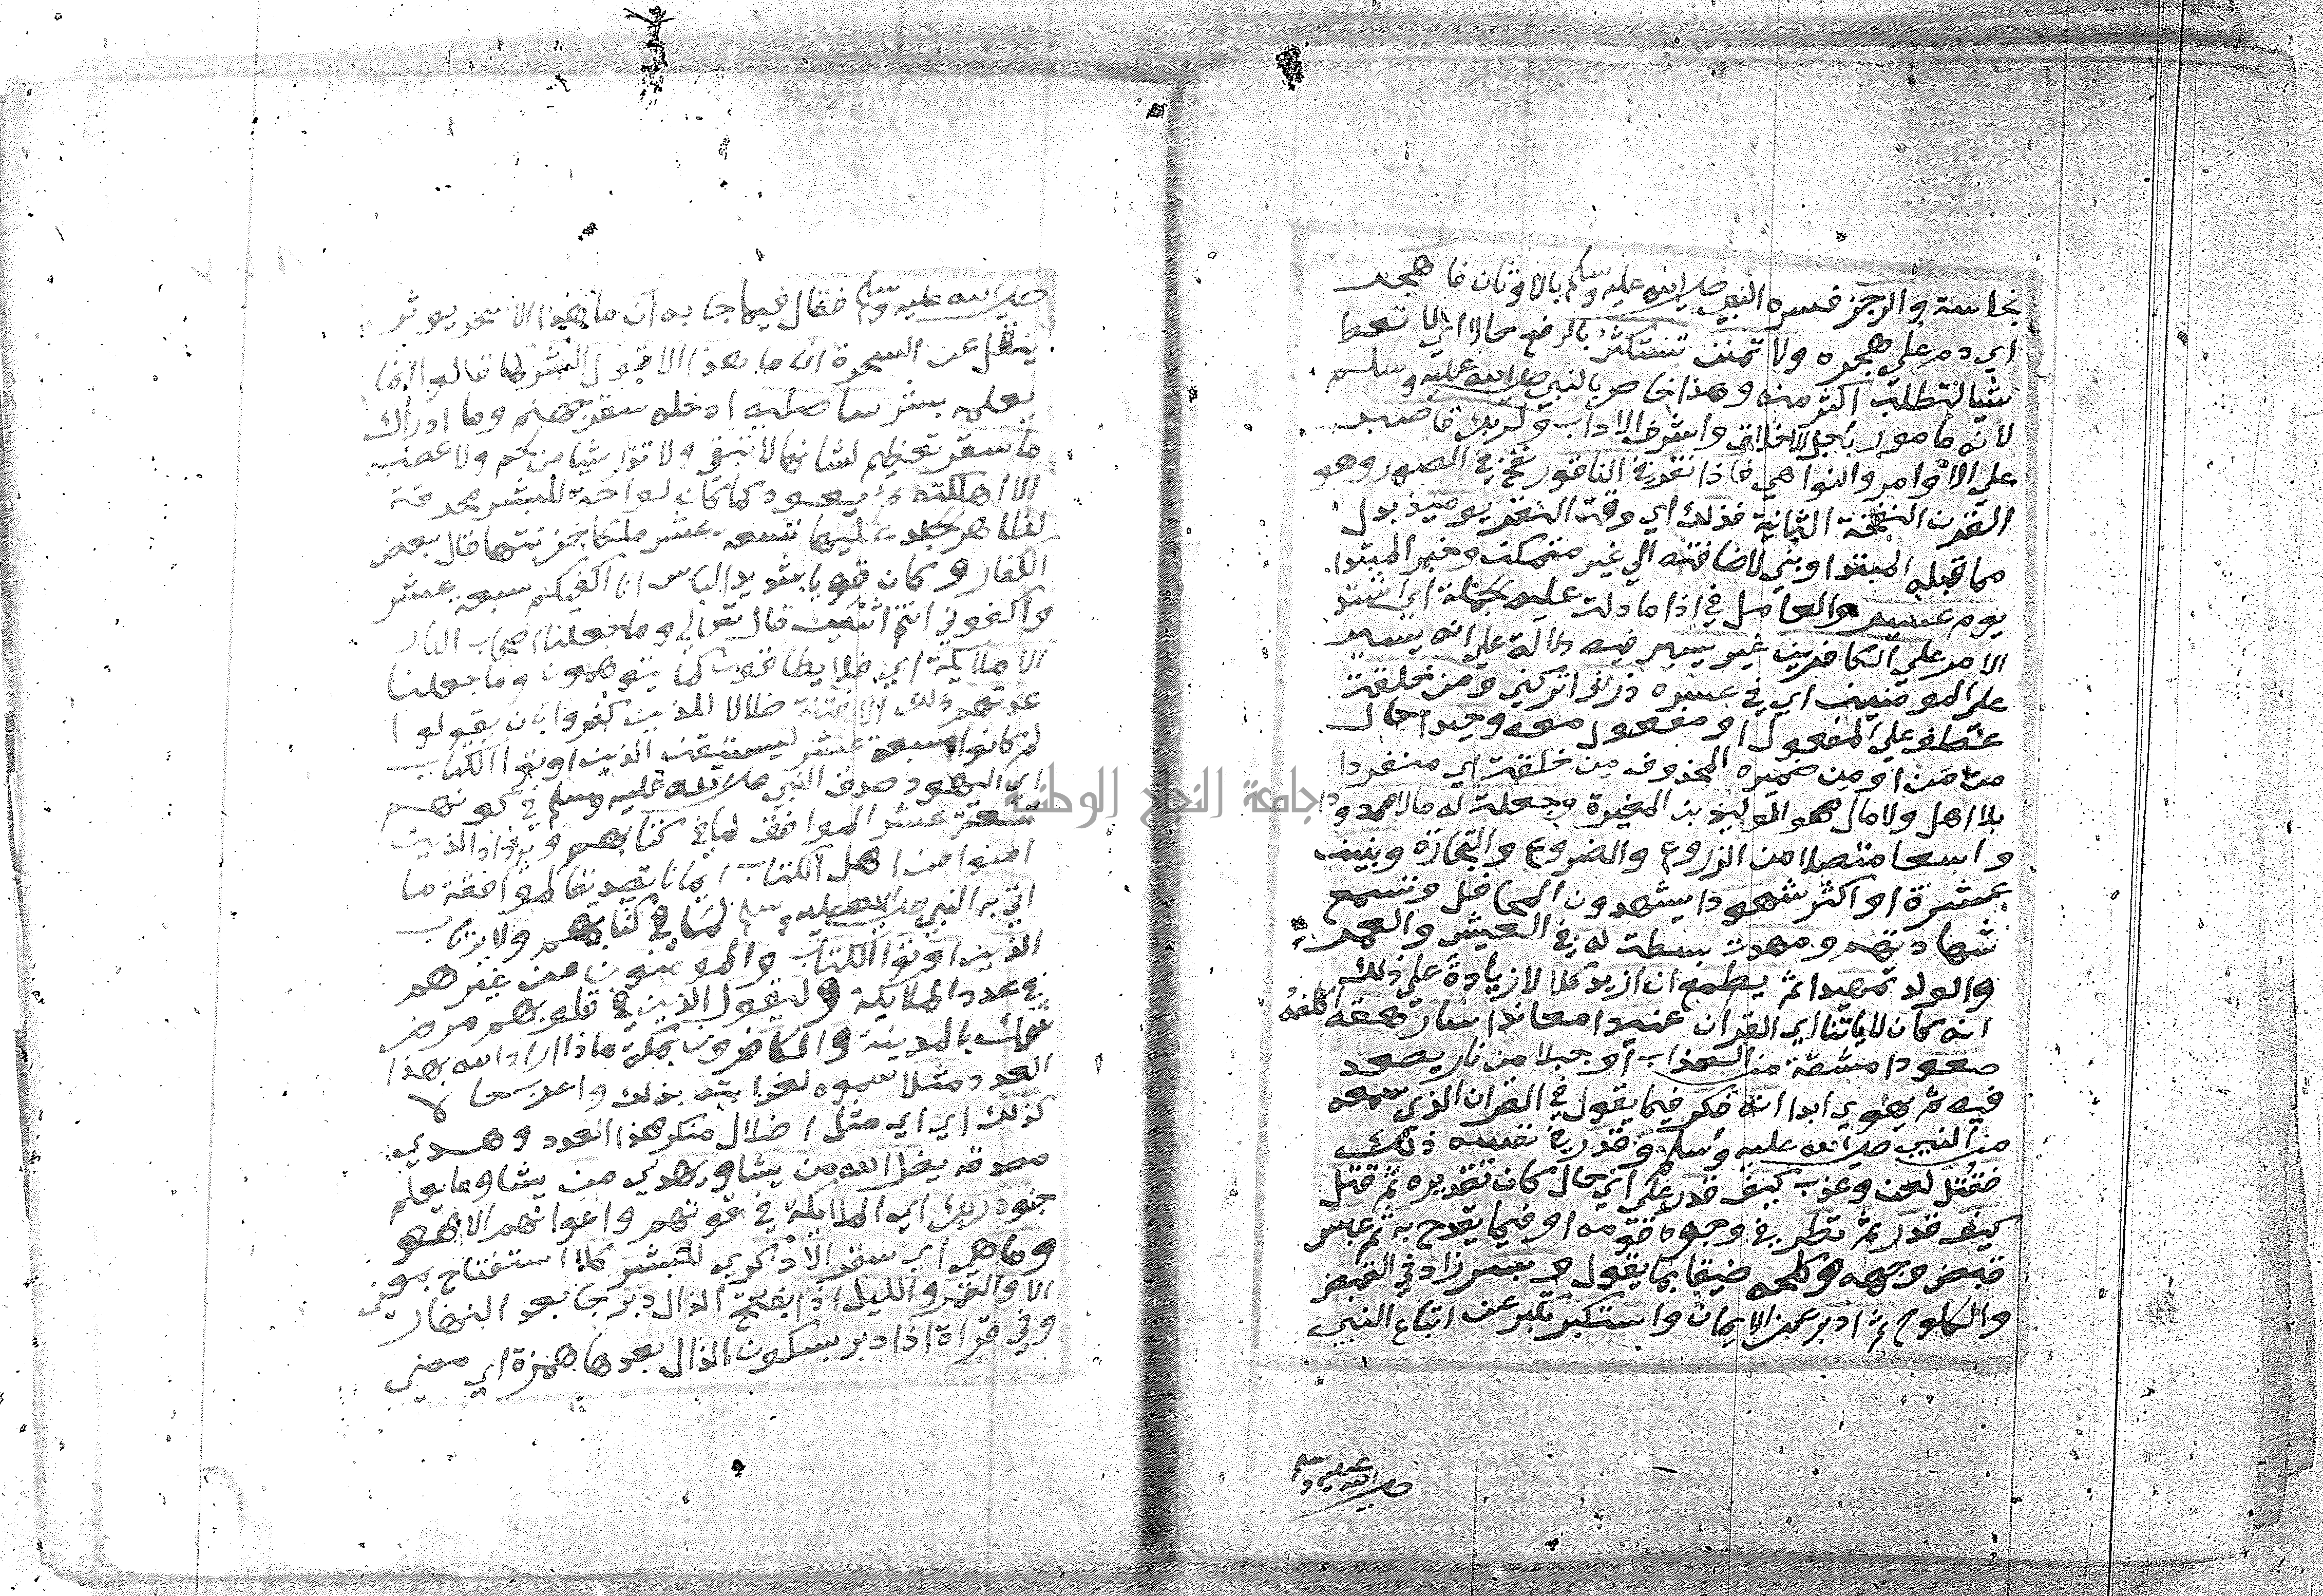 نجاسة والرجز فسره النبي صلى الله عليه وسلم بالاوثان فاهجر
اي دم على هجره ولا تمنن تستكثر بالرفع حالا اي لا تعط
شيا لتطلب اكثر منه وهذا خاص بالنبي صلى الله عليه وسلم
لانه مامور باجل الاخلاق واشرف الاداب ولربك فاصبر
على الاوامر والنواهي فاذا نقر في الناقور نفخ في الصور وهو
القرن النفخة الثانية فذلك اي وقت النقر يوميذ بدل
مما قبله المبتدا وبني لاضافته الى غير متمكن وخبر المبتدا
يوم عسير والعامل في اذا ما دلت عليه الجملة اي اشتد
الامر على الكافرين غير يسير فيه دلالة على انه يسير
على المومنين اي في عسره ذرني اتركني ومن خلقت
عطف على المفعول او مفعول معه وحيدا حال
من من او من ضميره المحذوف من خلقت اي منفردا
بلا اهل ولا مال هو الوليد بن المغيرة وجعلت له مالا ممدودا
واسعا متصلا من الزروع والضروع والتجارة وبنين
عشرة او اكثر شهودا يشهدون المحافل وتسمع
شهادتهم ومهدت بسطت له في العيش والعمر
والولد تمهيدا ثم يطمع ان ازيد كلا لا ازيادة على ذلك
انه كان لاياتنا اي القران عنيدا معاندا سارهقه اكلفه
صعودا مشقة من العذاب او جبلا من نار يصعد
فيه ثم يهوي ابدا انه فكر فيما يقول في القران الذي سمعه
من النبي صلى الله عليه وسلم وقدر في نفسه ذلك
فقتل لعن وعذب كيف قدر على اي حال كان تقديره ثم قتل
كيف قدر ثم نظر في وجوه قومه او فيما يقدح به ثم عبس
قبض وجهه وكلحه ضيقا بما يقول وبسر زاد في القبض
والكلوح ثم ادبر عن الايمان واستكبر تكبر عن اتباع النبي
صلى الله عليه وسلم
صلى الله عليه وسلم فقال فيما جا به ان ما هذا الا سحر يوثر
ينقل عن السحرة ان ما هذا الا قول البشر كما قالوا انما
يعلمه بشر ساصليه ادخله سقر جهنم وما ادراك
ما سقر تعظيم لشانها لا تبقي ولا تذر شيا من لحم ولا عصب
الا اهلكته ثم يعود كما كان لواحة للبشر محرقة
لظاهر الجلد عليها تسعة عشر ملكا خزنتها قال بعض
الكفار وكان قويا شديد الباس انا اكفيكم سبعة عشر
واكفوني انتم اثنين قال تعالى وما جعلنا اصحاب النار
الا ملايكة اي فلا يطاقون كما يتوهمون وما جعلنا
عدتهم ذلك الا فتنة ضلالا للذين كفروا بان يقولوا
لم كانوا تسعة عشر ليستيقن الذين اوتوا الكتاب
اي اليهود صدق النبي صلى الله عليه وسلم في كونهم
تسعة عشر الموافق لما في كتابهم ويزداد الذين
امنوا من اهل الكتاب ايمانا تصديقا لموافقة ما
اتى به النبي صلى الله عليه وسلم لما في كتابهم ولا يرتاب
الذين اوتوا الكتاب والمومنون من غيرهم
في عدد الملايكة وليقول الذين في قلوبهم مرض
شك بالمدينة والكافرون بمكة ماذا اراد الله بهذا
العدد مثلا سموه لغرابته بذلك واعرب حالا
كذلك اي اي مثل اضلال منكر هذا العدد وهدي
مصدقه يضل الله من يشا ويهدي من يشا وما يعلم
جنود ربك اي الملايكة في قوتهم واعوانهم الا هو
وما هي اي سقر الا ذكرى للبشر كلا استفتاح بمعنى
الا والقمر والليل اذا بفتح الذال دبر جا بعد النهار
وفي قراة اذا ادبر بسكون الذال بعدها همزة اي مضى
جامعة النجاح الوطنية